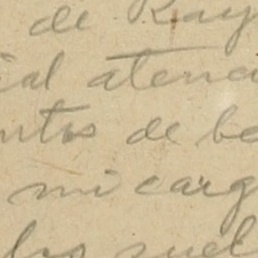 de Ray
ial atenci
ntos de be
mi carg
los suel